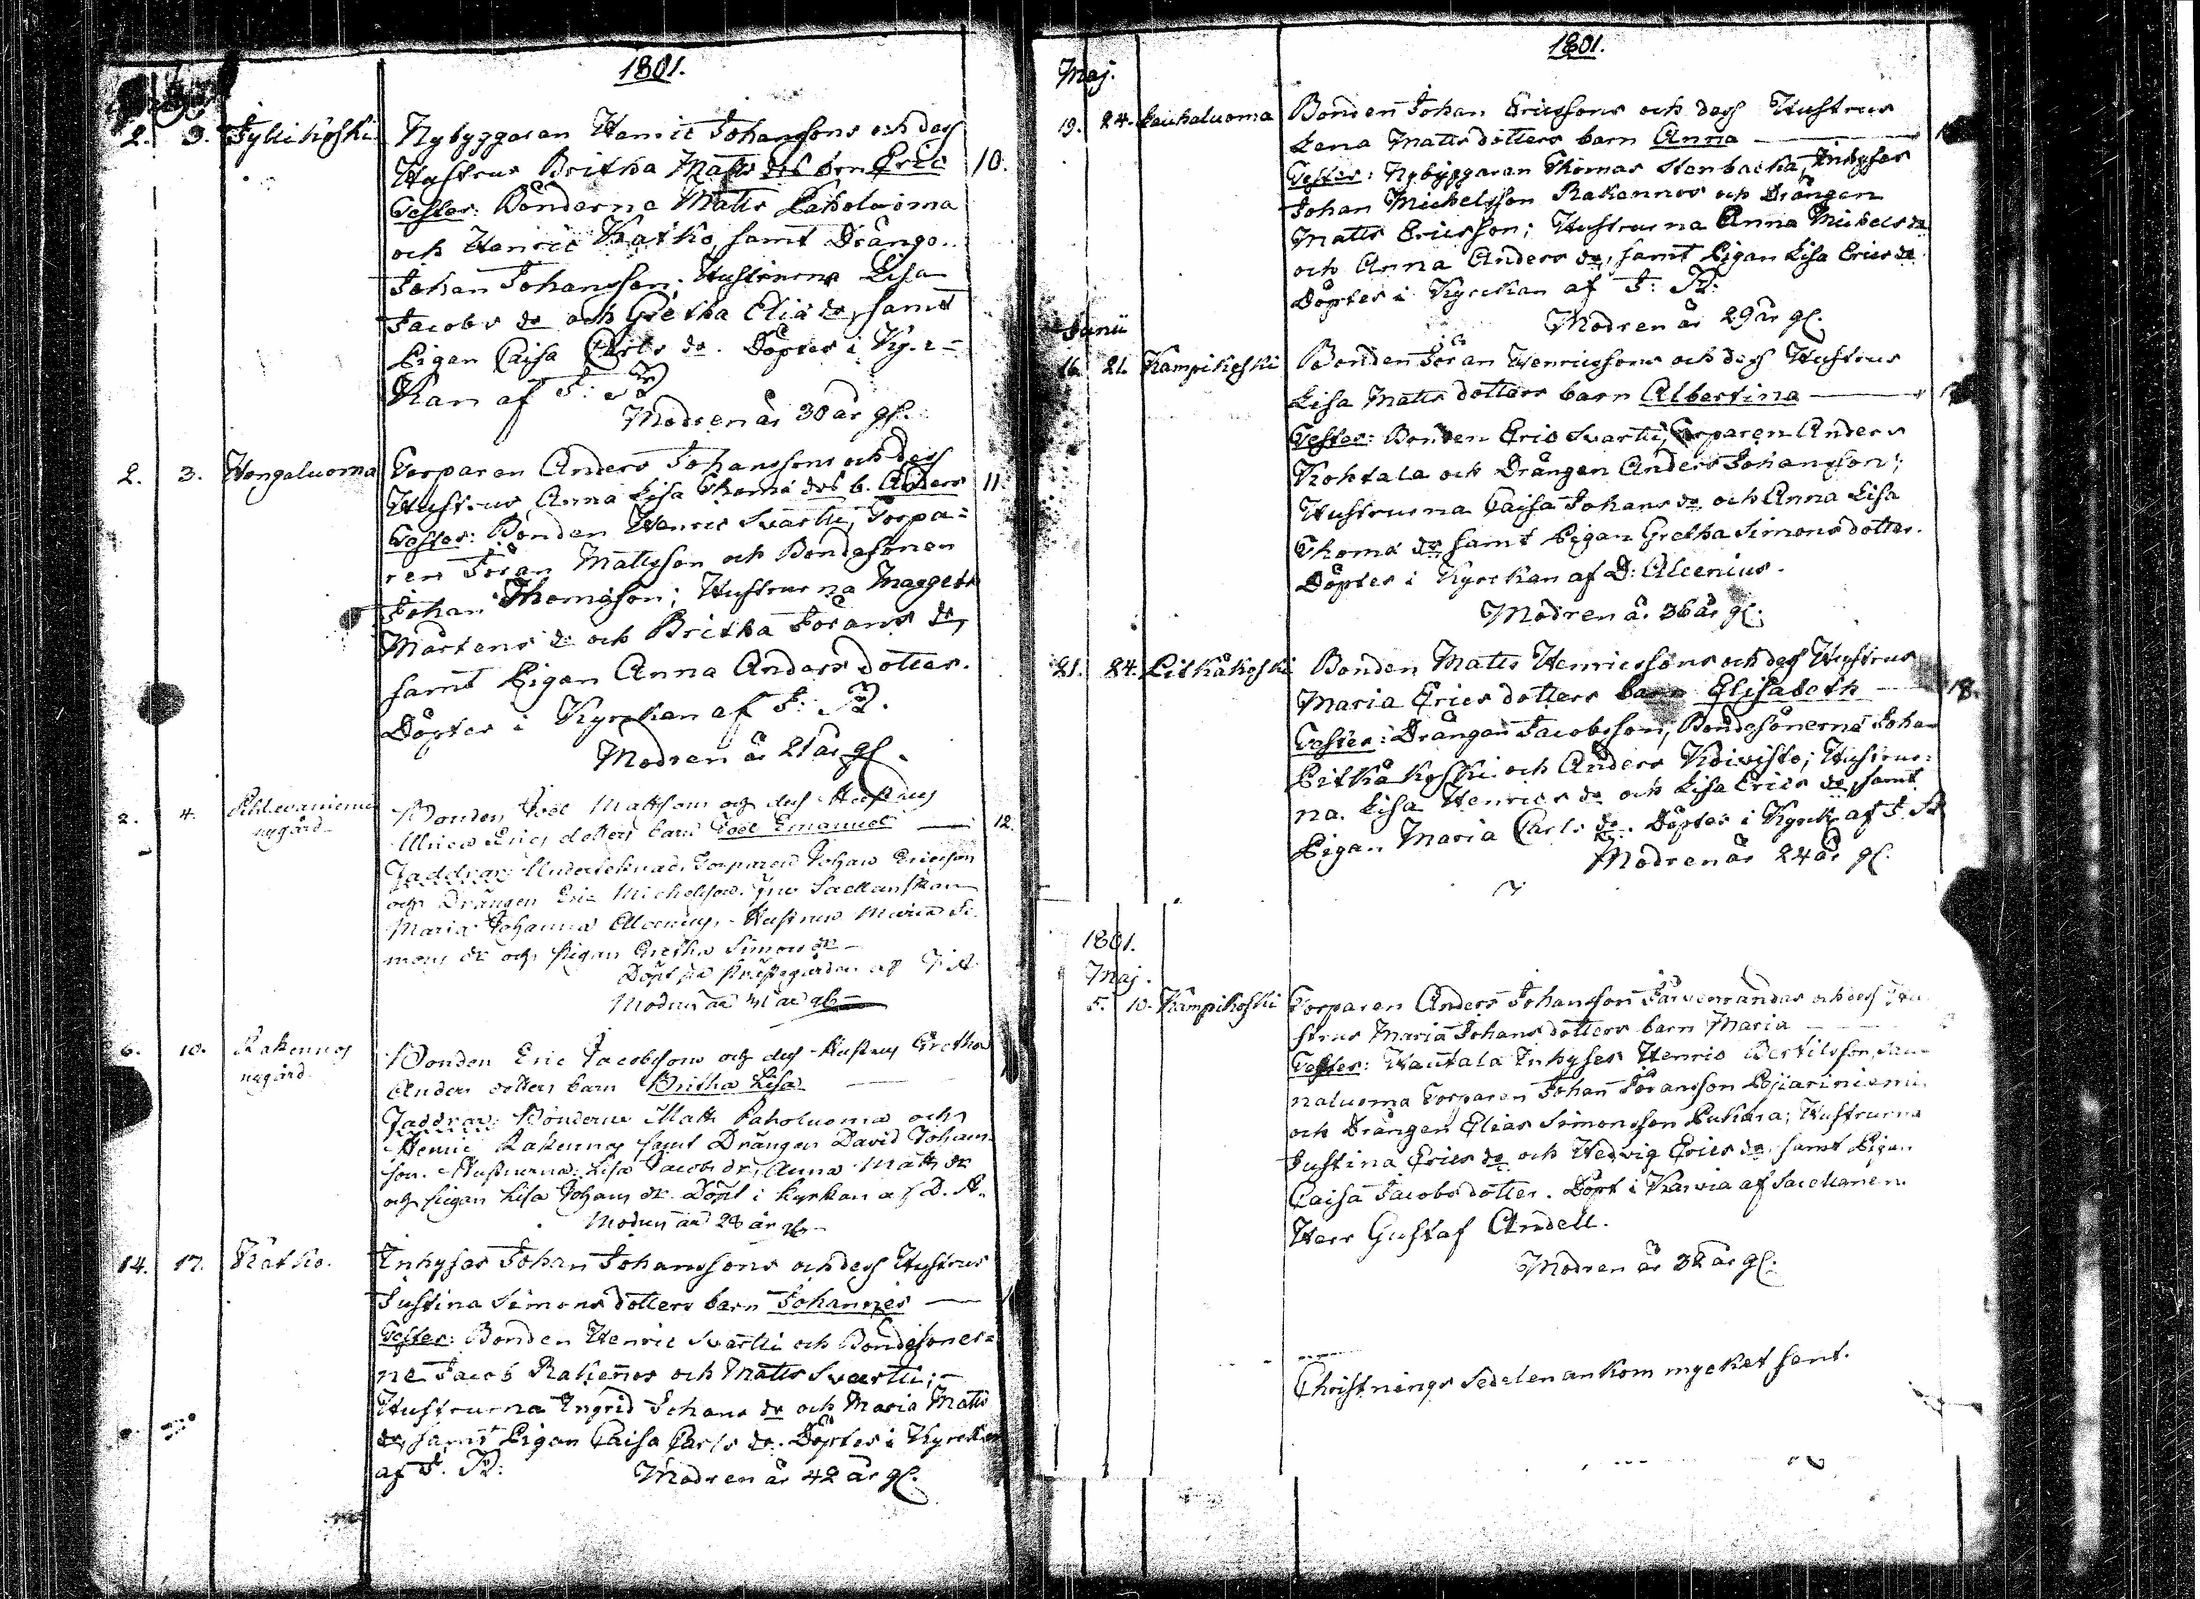 1801.
2. 3. Jylli Koski Nybyggaren Henric Johanssons och dess
Hustrus Britha Matts dot. brn Eric 10.
Testes: Bönderne Matts Paholuoma
och Henric Katko, samt Dräng.
Johan Johansson; Hustrurna Lisa
Jacobs dr och Gretha Eliæ dr, samt
Pigan Caisa Carls dr. Döptes i Kyr-
kan af J: R
Modren är 30 år gl.
2. 3. Hongaluoma Torparen Anders Johanssons och dess
Hustrus Anna Lisa Thomæ dot. b. Anders 11.
Testes: Bonden Henric Svartti, Torpa=
ren Jöran Mattsson och Bondesonen
Johan Thomasson; Hustrurna Margeta
Mårtens dr och Britha Jörans dr,
samt Pigan Anna Anders dotter.
Döptes i Kyrckan af J: R.
Modren är 21 år gl.
2. 4. nygård Bonden Joel Mattsons och dess Hustrus
Ulrica Erics dotters barn Joel Emanuel 12.
Faddrar: Undertecknad, Torparen Johan Ericsson
och Drängen Eric Michelsson. Fru Sacellanskan
Maria Johanna Alcenius, Hustrun Maria Si-
mons dr och Pigan Gretha Simons dr
Döpt på Prästgården af J A
Modren är 31 år gl
6. 10. Rakennus nygård Bonden Eric Jacobssons och dess Hustrus Gretha
Anders dotters barn Britha Lisa
Faddrar: Bönderne Matts Paholuoma och
Henric Rakennus samt Drängen David Johans-
son. Hustrurna: Lisa Jacobs dr, Anna Matts dr
och Pigan Lisa Johans dr. Döpt i kyrkan af D. A.
Modren är 28 år gl
14. 17. Katko. Inhyses Johan Johanssons och dess Hustrus
Justina Simons dotters barn Johannes
Testes: Bonden Henric Svartti och Bondesöner=
ne Jacob Rakennos och Matts Svartti;
Hustrurna Ingrid Johans dr och Maria Matts
dr, samt Pigan Caisa Carls dr. Döptes i Kyrckan
af J. R: Modren är 42 år gl.
1801.
Maj.
19. 24. Pauhaluoma Bonden Johan Ericssons och dess Hustrus
Lena Matts dotters barn Anna
Testes: Nybyggaren Thomas Stenbacka, Inhyses
Johan Michelsson Rakennos och Drängen
Matts Ericsson; Hustrurna Anna Michels dr
och Anna Anders dr, samt Pigan Lisa Erics dr
Döptes i Kyrckan af J: R:
Modren är 29 år gl.
Junii
16. 21. Kampikoski Bonden Jöran Henricssons och dess Hustrus
Lisa Matts dotters barn Albertina
Testes: Bonden Eric Svartti, Torparen Anders
Kohtala och Drängen Anders Johansson;
Hustrurna Caisa Johans dr och Anna Lisa
Thomæ dr samt Pigan Gretha Simons dotter.
Döptes i Kyrckan af D: Alcenius.
Modren är 36 år gl.
21. 24. Pitkäkoski Bonden Matts Henricssons och dess Hustrus
Maria Erics dotters barn Elisabeth 18.
Testes: Drängen Jacobsson, Bondesönerne Johan
Pitkäkoski och Anders Koivisto; Hustrur=
na. Lisa Henrics dr och Lisa Erics dr, samt
Pigan Maria Carls dr. Döptes i Kyrck. af J. R
Modren är 24 år gl.
1801.
Maj.
5. 10. Kampikoski Torparen Anders Johansson Järvenrandas och dess Hu-
strus Maria Johans dotters barn Maria
Testes: Hautala Inhyses Henric Bertilsson,
naluoma Torparen Johan Jöransson
och Drängen Elias Simonsson Pukara; Hustrurna
Justina Erics dr och Hedvig Erics dr samt Pigan
Caisa Jacobs dotter. Döpt i Karvia af Sacellanen
Herr Gustaf Andell.
Modren är 32 år gl.
Christnings Sedelen ankom mycket sent.